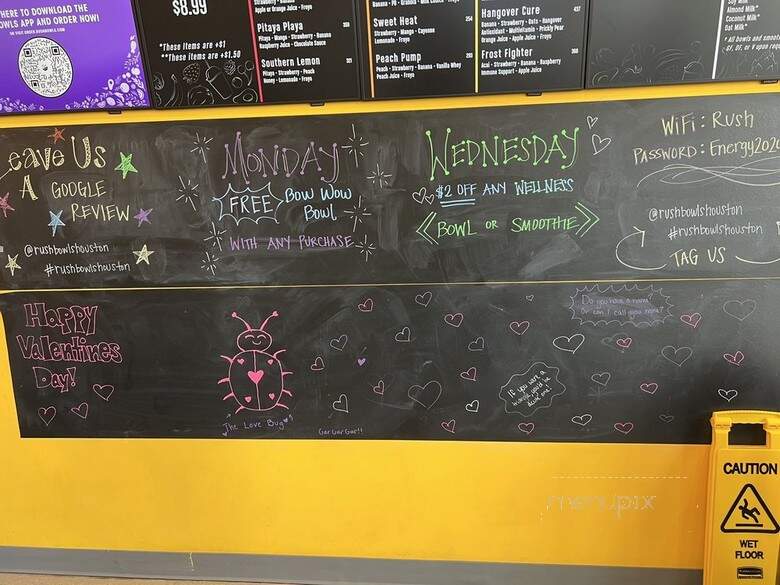 HERE TO DOWNLOAD THE
OWLS APP AND ORDER NOW!
$8.99
*These items are +$1
**These items are +$1.50
Apple or Orange Juice • Froyo
Pitaya Playa
Pitaya • Mango • Strawberry • Banana
Raspberry Juice • Chocolate Sauce
Southern Lemon
Pitaya • Strawberry • Peach
Honey • Lemonade • Froyo
Sweet Heat
Strawberry • Mango • Cayenne
Lemonade • Froyo
Peach Pump
Peach • Strawberry • Banana • Vanilla Whey
Peach Juice • Froyo
Hangover Cure
Banana • Strawberry • Oats • Hangover
Antioxidant • Multivitamin • Prickly Pear
Orange Juice • Apple Juice • Froyo
Frost Fighter
Acai • Strawberry • Banana • Raspberry
Immune Support • Apple Juice
Soy Milk*
Almond Milk*
Coconut Milk*
Oat Milk*
eave Us
A GOOGLE
REVIEW
@rushbowlshouston
#rushbowlshouston
MONDAY
FREE BOW WOW
BOWL
WITH ANY PURCHASE
WEDNESDAY
$2 OFF ANY WELLNESS
BOWL OR SMOOTHIE
WiFi: Rush
PASSWORD: Energy202
@rushbowlshouston
#rushbowlshouston
TAG US
Happy
Valentines
Day!
The Love Bug
Gar Gar Gar!!
Do you have a name?
Or can I call you mine?
If you were a
CAUTION
WET
FLOOR
menupix